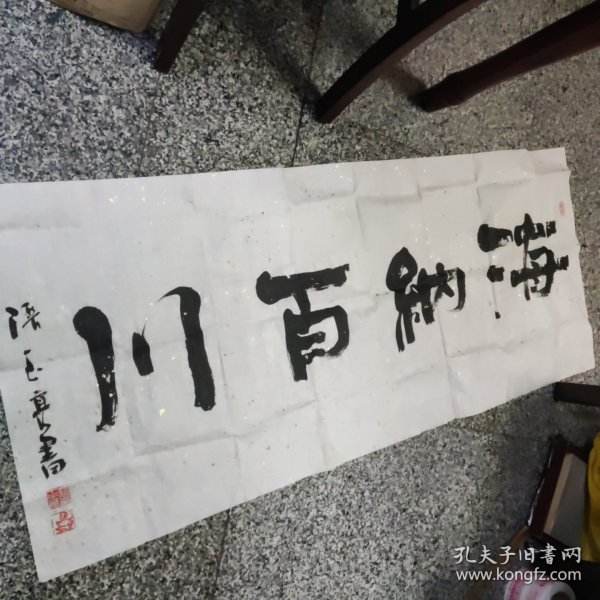 海納百川
書
孔夫子旧書网
www.kongfz.com